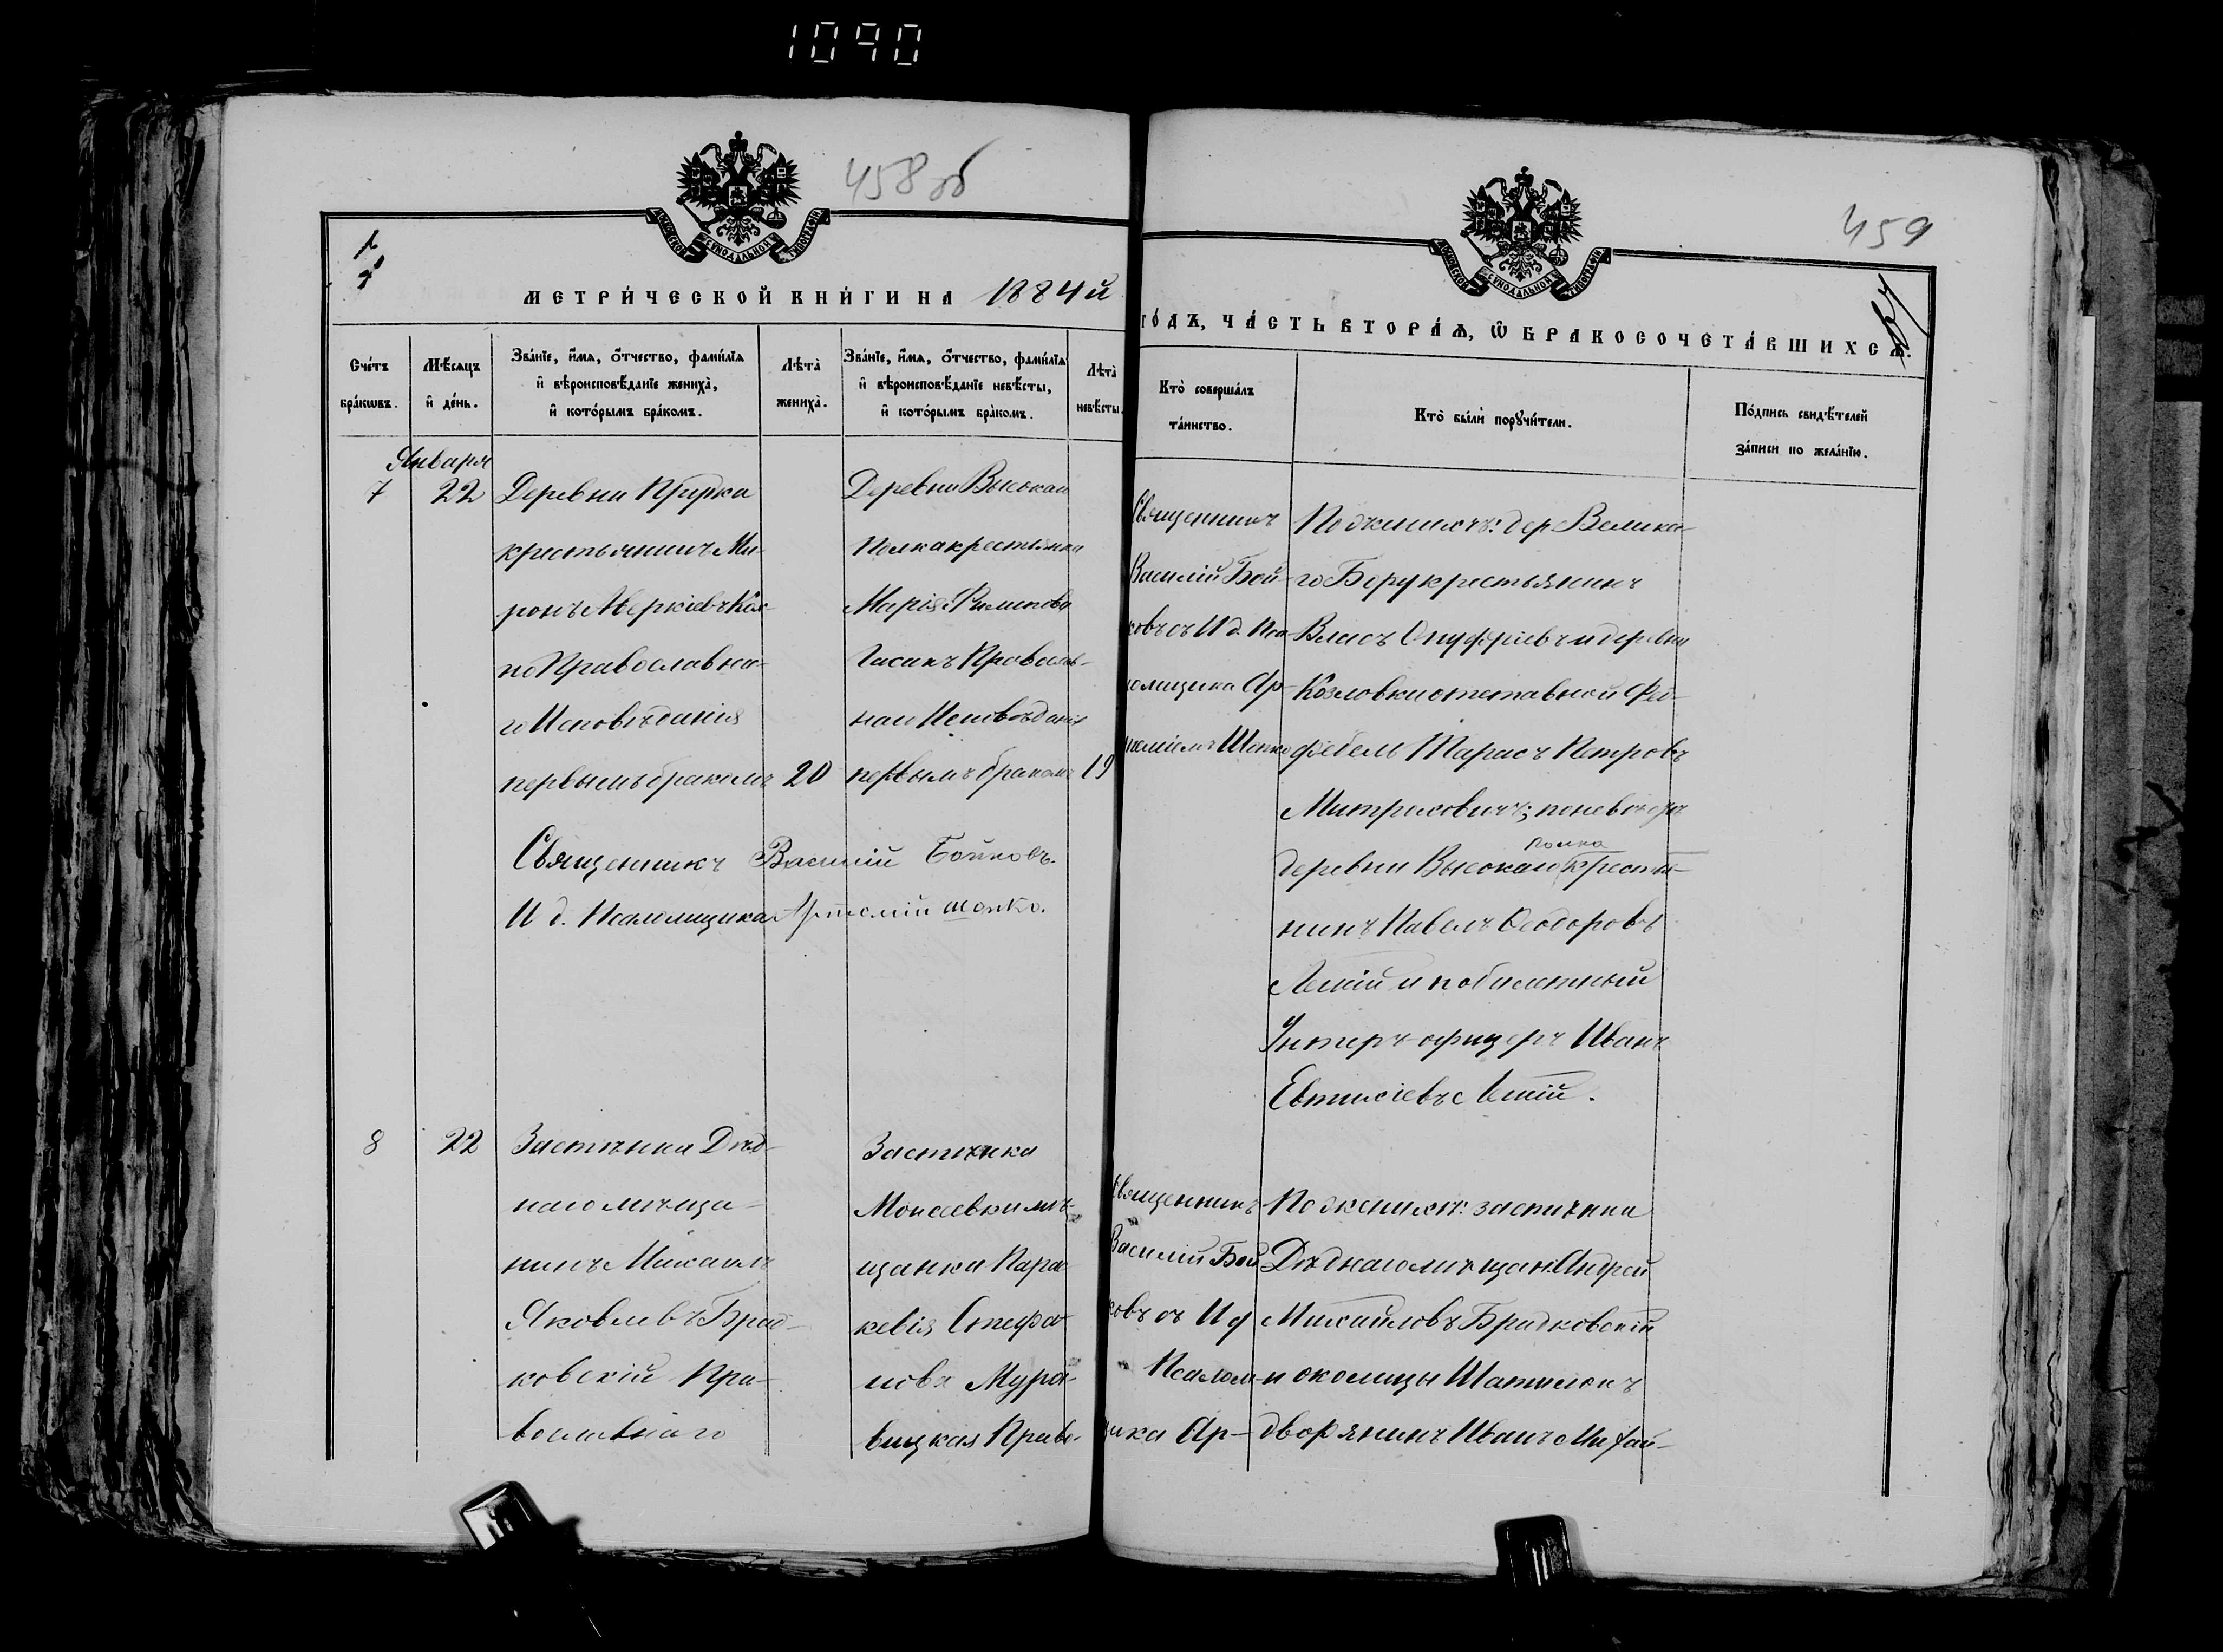 1090
458 об
459
МОСКОВСКОЙ СѴНОДАЛЬНОЙ ТИПОГРАФІИ
МОСКОВСКОЙ СѴНОДАЛЬНОЙ ТИПОГРАФІИ
МЕТРИ́ЧЕСКОЙ КНИ́ГИ НА 1884й
ГО́ДЪ, ЧА́СТЬ ВТОРА́Ѧ, Ѽ БРАКОСОЧЕТА́ВШИХСѦ.
Сче́тъ бра́кѡвъ.
Мѣ́сяцъ и҆ де́нь.
Зва́нїе, и҆́мѧ, ѻ҆́тчество, фами́лїѧ и҆ вѣроисповѣ́данїе жениха̀, и҆ кото́рымъ бра́комъ.
Лѣта̀ жениха̀.
Зва́нїе, и҆́мѧ, ѻ҆́тчество, фами́лїѧ и҆ вѣроисповѣ́данїе невѣ́сты, и҆ кото́рымъ бра́комъ.
Лѣта̀ невѣ́сты.
Кто̀ соверша́лъ та́инство.
Кто̀ бы́ли порꙋчи́тели.
По́дпись свидѣ́телей за́писи по жела́нїю.
Января
7
22
Деревни
крестьянинъ Ми-
ронъ Аверкіевъ Кох-
но Православна-
го Исповѣданія
первымъ бракомъ
20
Деревни Высокаго
Полка крестьянка
Марія Филипова
Гасюкъ Православ-
наго Исповѣданія
первымъ бракомъ
19
Священникъ
Василій Бой-
ковъ съ И д. Пса-
ломщика Ар-
теміемъ Шонко
По женихѣ: дер Велика-
го Бору крестьянинъ
Власъ Онуфріевъ и деревни
Козловки отставной Фельд-
фебель Тарасъ Петровъ
Митрахович; по невѣстѣ
полка
деревни Высокаго крестья-
нинъ Павелъ Ѳеодоровъ
и побилетный
Унтеръ-офицеръ Иванъ
Евтихіевъ
Священникъ Василій Бойковъ.
И д. Псаломщика Артемій Шонко.
8
22
Застѣнка Дѣд-
наго мѣща-
нинъ Михаилъ
Яковлевъ Брад-
ковскій Пра-
вославнаго
Застѣнка
Моисеевки мѣ-
щанка Пара-
кевія Стефа-
нова Мура-
вицкая Право-
Священникъ
Василій Бой-
ковъ съ И д
Псалом-
щика Ар-
По женихѣ: застѣнка
Дѣднаго мѣщан: Андрей
Михайловъ Брадковскій
и околицы Шатилокъ
дворянинъ Иванъ Михай-